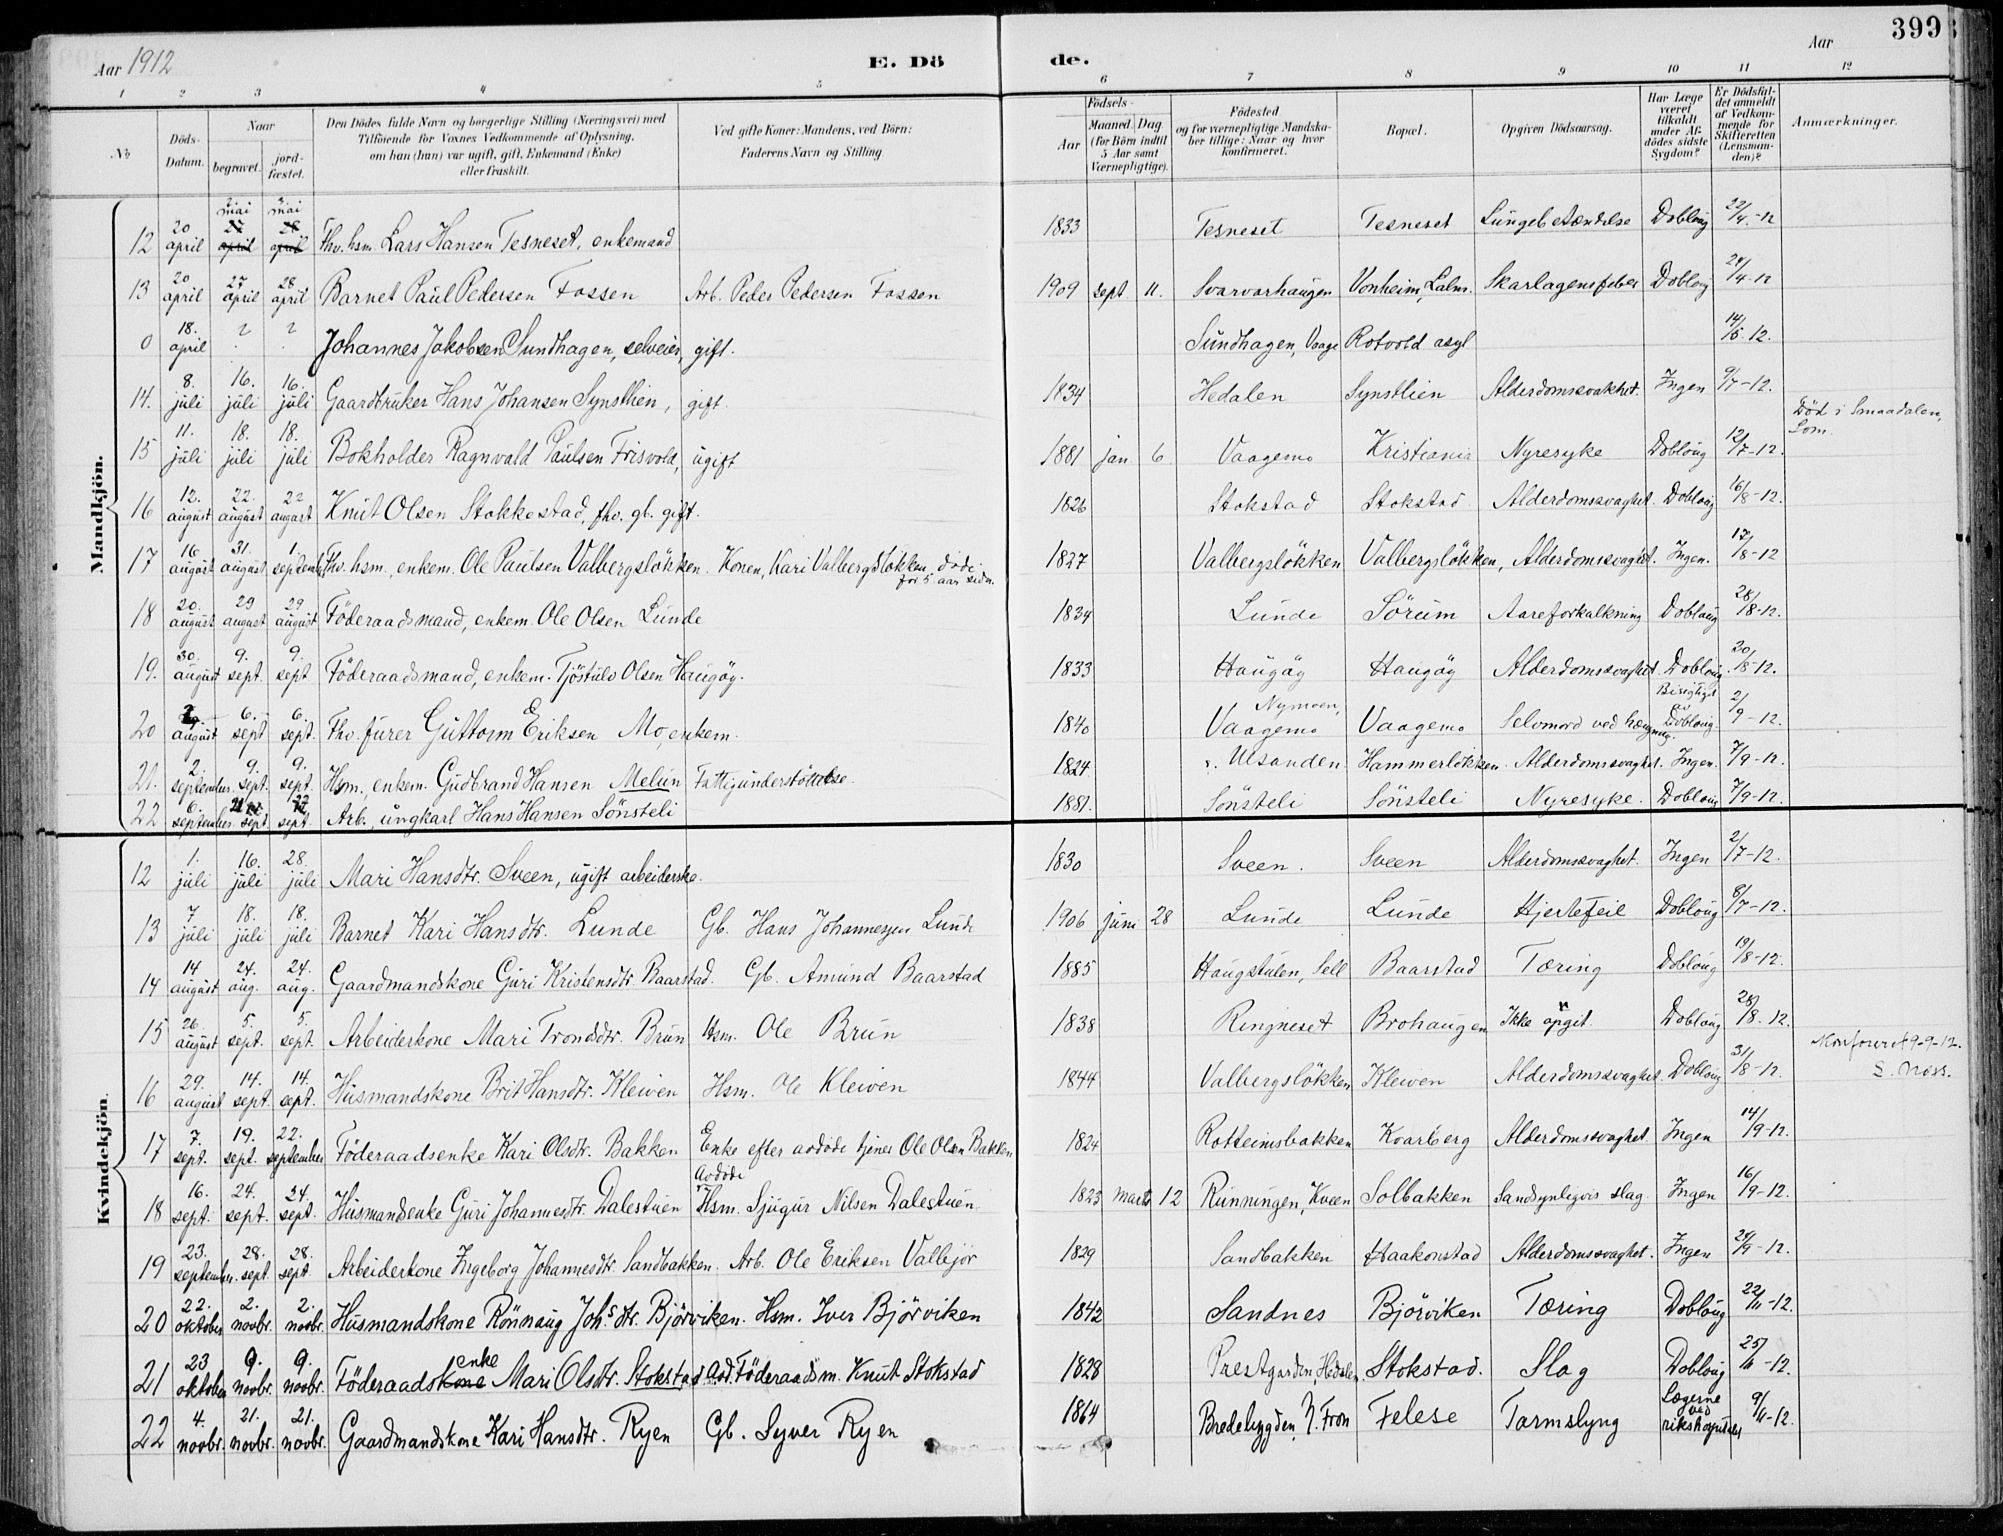 Aar 1912 E. Dö de. Aar 399
1 2 3 4 5 6 7 8 9 10 11 12
No Döds-Datum. Naar begravet. jordfæstet. Den Dödes fulde Navn og borgerlige Stilling (Næringsvei) med Tilföiende for Voxnes Vedkommende af Oplysning, om han (hun) var ugift, gift, Enkemand (Enke) eller fraskilt. Ved gifte Koner: Mandens, ved Börn: Faderens Navn og Stilling. Födsels- Aar Maaned. Dag (for Börn indtil 5 Aar samt Værnepligtige). Födested og for værnepligtige Mandskaber tillige: Naar og hvor konfirmeret. Bopæl. Opgiven Dödsaarsag. Har Læge været tilkaldt under Afdödes sidste Sygdom? Er Dödsfaldet anmeldt af Vedkommende for Skifteretten (Lensmanden)? Anmærkninger.
Mandkjön.
12 20 april 2 mai 27 april 3 mai 28 april Fhv. hsm. Lars Hansen Tesneset, enkemand 1833 Tesneset Tesneset Lungebetændelse Dobloug 22/4-12
13 20 april 27 april 28 april Barnet Paul Pedersen Fossen Arb. Peder Pedersen Fossen 1909 sept 11. Svarvarhaugen Vonheim, Lalm. Skarlagensfeber Dobloug 24/4-12
0 18. april ? ? Johannes Jakobsen Sundhagen, selveier, gift. Sundhagen, Vaage Rotvold asyl 14/5-12.
14. 8. juli 16. juli 16. juli Gaardbruker Hans Johansen Synstlien, gift. 1834 Hedalen Synstlien Alderdomssvakhet. Ingen 9/7-12.
15 11. juli 18. juli 18. juli Bokholder Ragnvald Paulsen Frisvold, ugift 1881 jan 6 Vaagemo Kristiania Nyresyke Dobloug 12/7-12. Död i Smaadalen, Lom.
16 12. august 22. august 22 august Knut Olsen Stokkestad, fhv. gb. gift. 1826 Stokstad Stokstad Alderdomssvaghet. Dobloug 16/8-12.
17 16 august 31. august 1. septemb. Fhv. hsm., enkem. Ole Paulsen Valbergslökken. Konen, Kari Valbergslökken, döde for 5 aar siden. 1827 Valbergslökken Valbergslökken, Alderdomssvaghet. Ingen. 17/8-12
18 20. august 29 august 29 august Föderaadsmand, enkem. Ole Olsen Lunde 1834 Lunde Sörum Aareforkalkning Dobloug 28/8-12.
19. 30. august 9. sept. 9. sept Föderaadsmand, enkem. Tjöstulv Olsen Haugöy. 1833 Haugöy Haugöy Alderdomssvaghet. Dobloug. 20/8-12.
20 august 6. sept 6. sept. Fhv. furer Guttorm Eriksen Mo, enkem. 1840 Nymoen, Vaagemo Vaagemo Selvmord ved hængning. Dobloug 2/9-12.
21. 2. september 9. sept. 9. sept. Hsm., enkem. Gudbrand Hansen Melum Fattigunderstöttelse 1824 Ulsanden Hammerlökken Alderdomssvaghet. Ingen. 7/9-12.
22 6. september 21 sept. 22 sept. Arb., ungkarl Hans Hansen Sönsteli 1881. Sönsteli Sönsteli Nyresyke. Dobloug 7/9-12.
Kvindekjön.
12 1. juli 16. juli 28. juli Mari Hansdtr. Sveen, ugift arbeiderske. 1830 Sveen. Sveen Alderdomssvaghet. Ingen 2/7-12.
13 7. juli 18. juli 18. juli Barnet Kari Hansdtr. Lunde Gb. Hans Johannessen Lunde 1906 juni 28 Lunde Lunde Hjertefeil Dobloug 8/7-12.
14 14 august 24. aug. 24. aug. Gaardmandskone Guri Kristensdtr. Baarstad. Gb. Amund Baarstad 1885 Haugstulen, Sell Baarstad Tæring Dobloug 19/8-12.
15 26. august 5. sept. 5. sept. Arbeiderkone Mari Trondsdtr. Brun Hsm. Ole Brun 1838 Ringneset Brohaugen Ikke opgit. Dobloug 28/8-12.
16 29. august 14. sept. 14. sept. Husmandskone Brit Hansdtr. Kleiven Hsm. Ole Kleiven 1844 Valbergslökken Kleiven Alderdomssvaghet. Dobloug 31/8-12. Konfereret 9-9-12. S. Næss.
17 7. sept. 19. sept. 22. september Föderaadsenke Kari Olsdtr. Bakken Enke efter avdöde tjener Ole Olsen Bakken 1824 Rotteimsbakken Kvarberg Alderdomssvaghet Ingen 14/9-12.
18 16. sept. 24. sept. 24. sept. Husmandsenke Guri Johannesdtr. Dalestuen Avdöde Hsm. Sjugur Nilsen Dalestuen. 1823 marts 12 Runningen, Kveen Solbakken Sandsynligvis slag. Ingen 16/9-12.
19 23. september. 28. sept. 28. sept. Arbeiderkone Ingeborg Johannesdtr. Sandbakken. Arb. Ole Eriksen Vallejor 1829 Sandbakken Haakonstad Alderdomssvaghet. Ingen 24/9-12.
20 22. oktober 2. novbr. 2. novbr. Husmandskone Rönnaug Johs.dtr. Björviken. Hsm. Iver Björviken 1842 Sandnes Björviken Tæring Dobloug 22/11-12.
21 23 oktober 9. novbr. 9. novbr. Föderaadskone enke Mari Olsdtr. Stokstad. Avd. Föderaadsm. Knut Stokstad 1828 Prestgarden, Hedalen Stokstad. Slag Dobloug 25/10-12.
22 4. novbr. 21. novbr. 21. novbr. Gaardmandskone Kari Hansdtr. Ryen Gb. Syver Ryen 1864 Bredebygden, N. Fron Felese Tarmslyng Lægerne ved rikshospitalet 9/11-12.